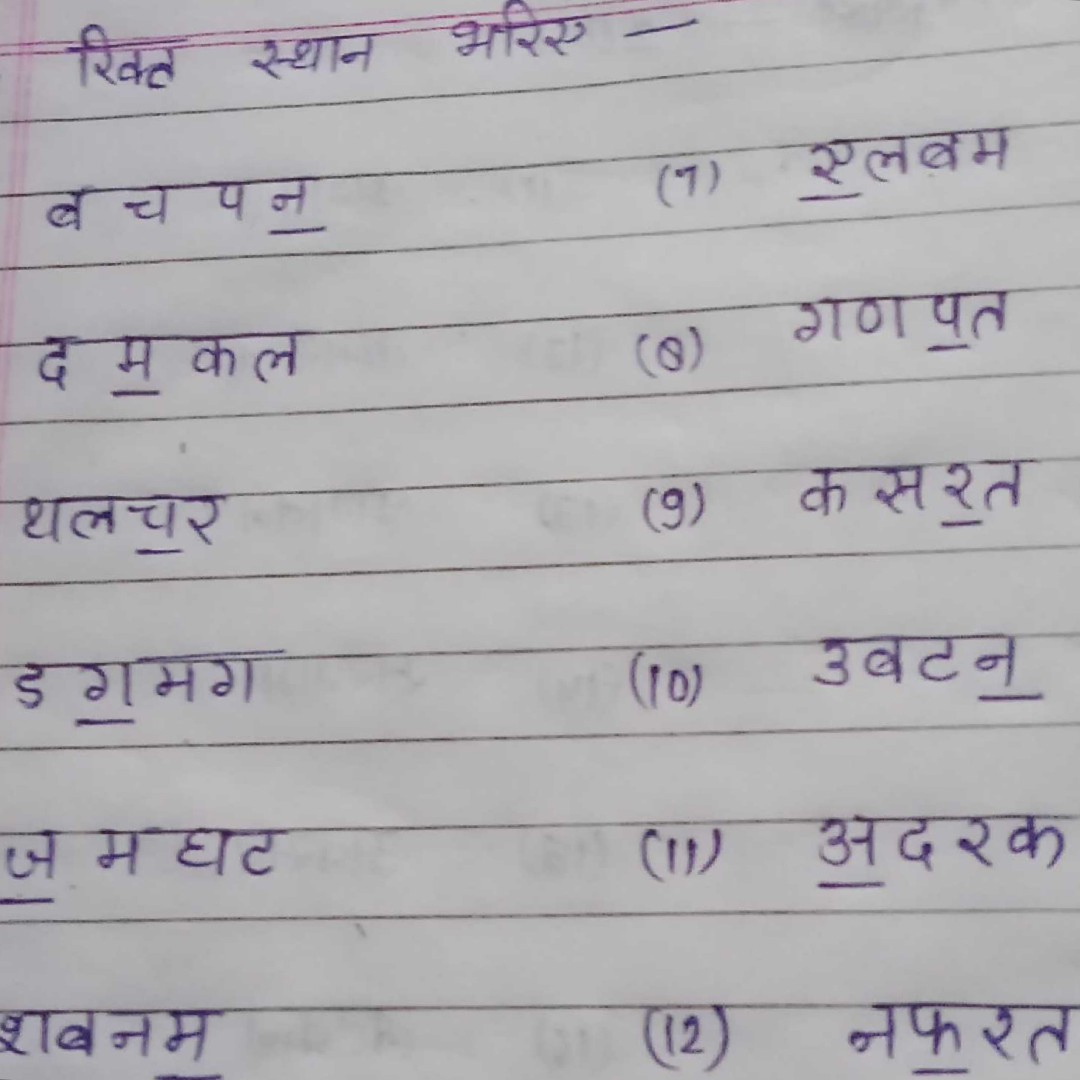 रिक्त स्थान भरिए —
बचपन (7) एलबम
दमकल (8) गणपत
थलचर (9) कसरत
डगमग (10) उबटन
जमघट (11) अदरक
शबनम (12) नफरत